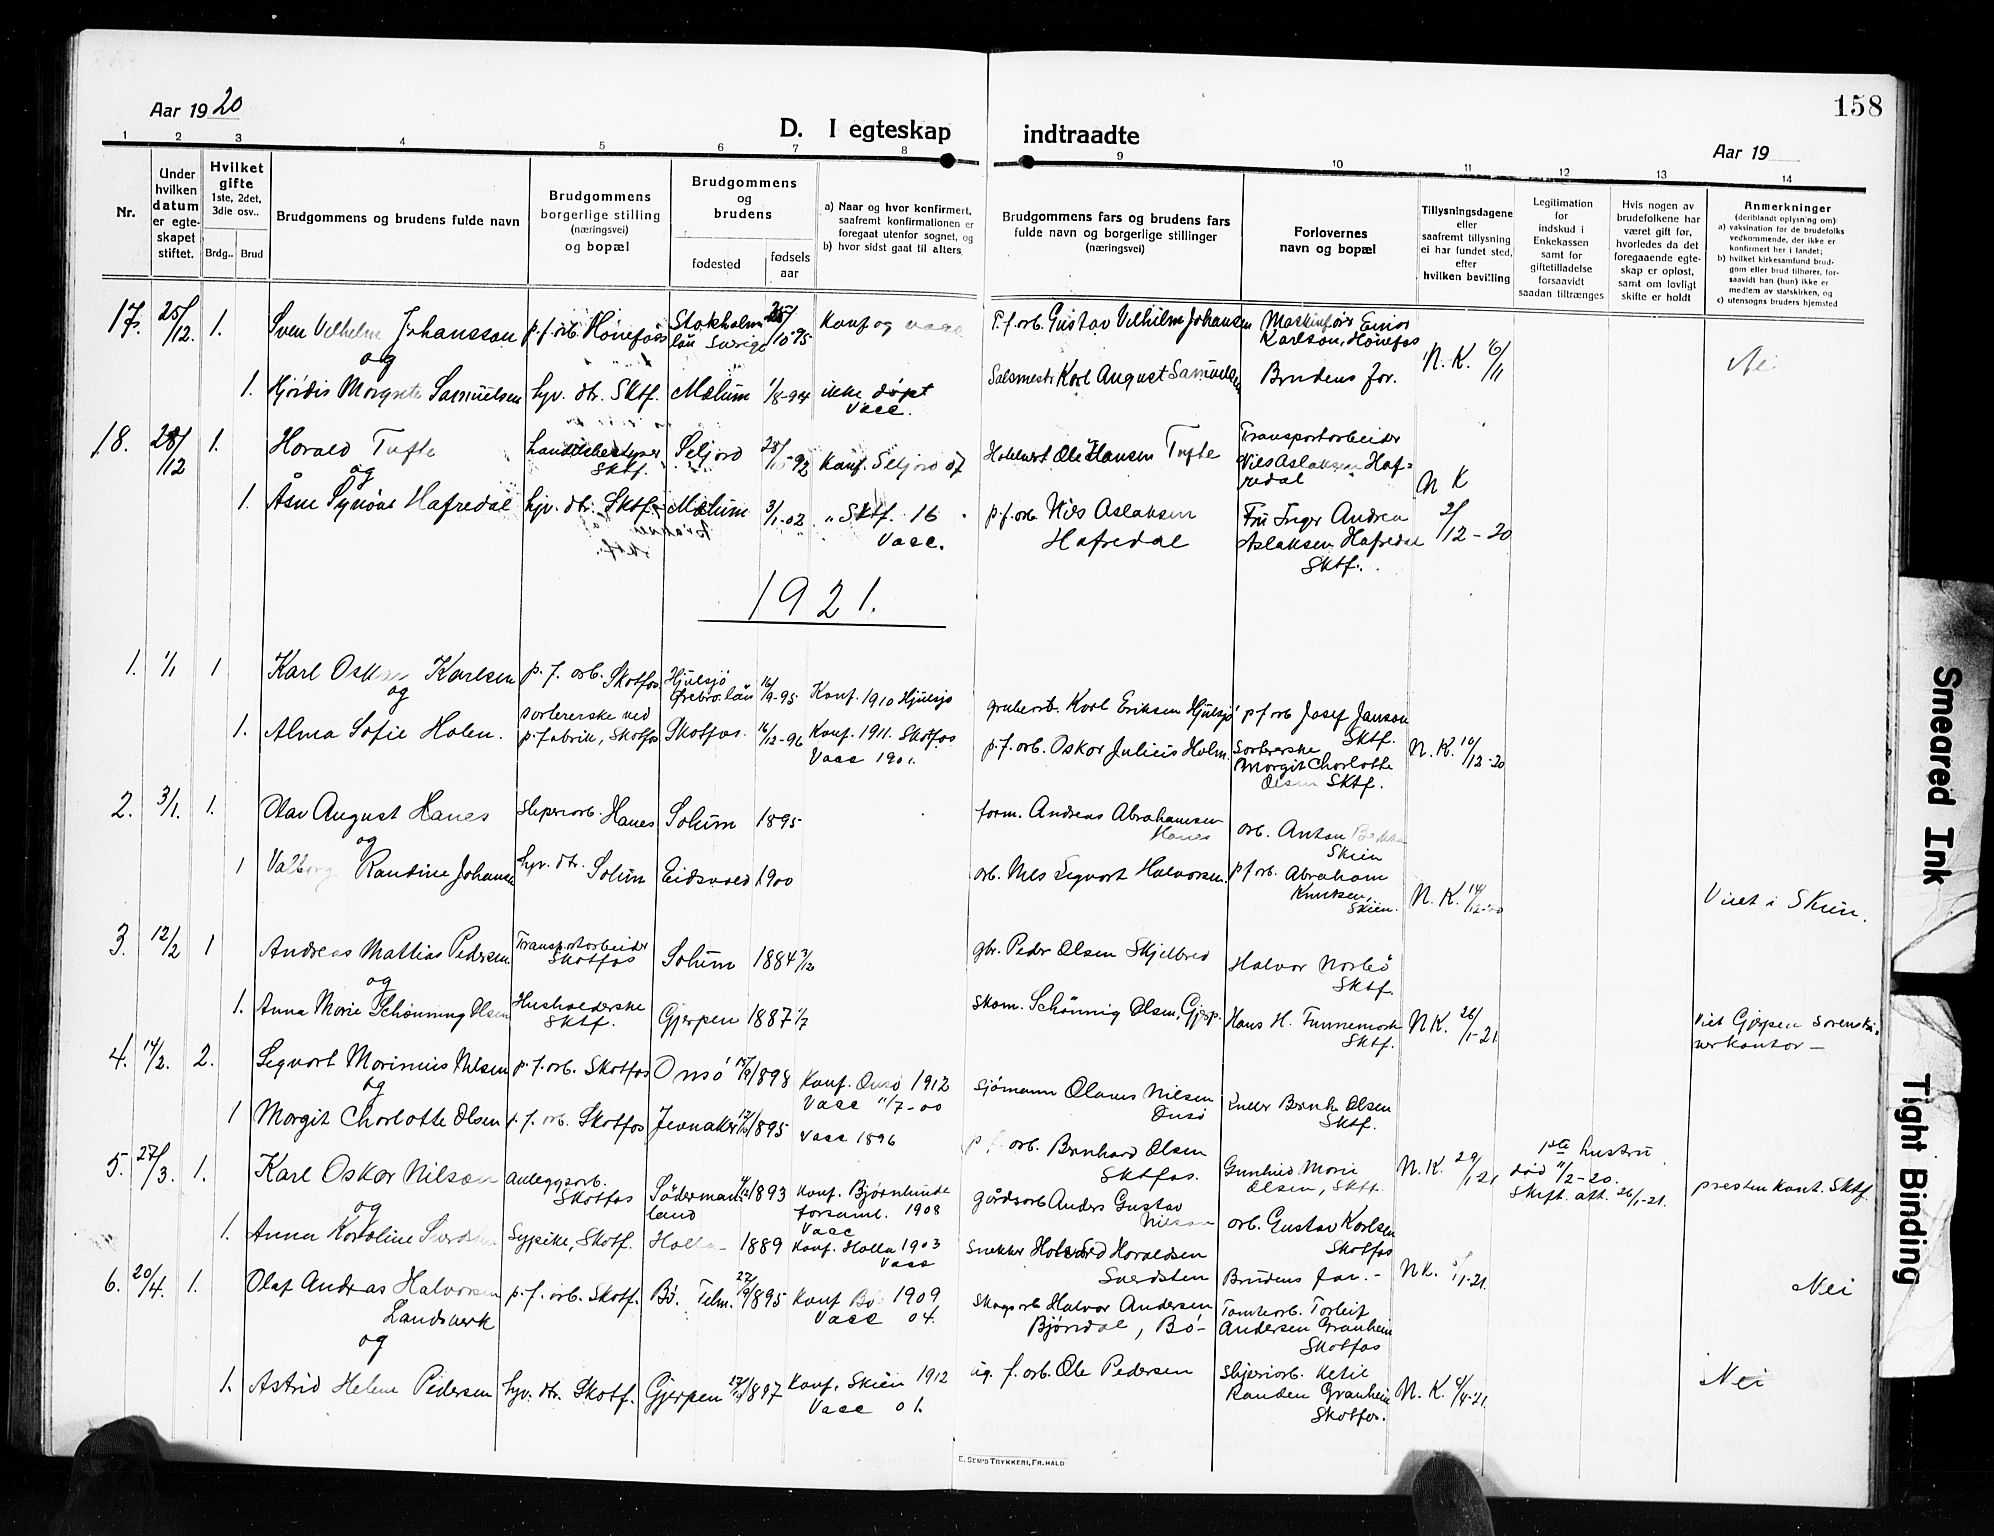 158
Aar 1920
D. I egteskap indtraadte
Aar 19
1 2 3 4 5 6 7 8 9 10 11 12 13 14
Nr.
Under hvilken datum er egteskapet stiftet.
Hvilket gifte
1ste, 2det, 3die osv..
Brdg.. Brud
Brudgommens og brudens fulde navn
Brudgommens borgerlige stilling (næringsvei) og bopæl
Brudgommens og brudens
fødested
fødselsaar
a) Naar og hvor konfirmert, saafremt konfirmationen er foregaat utenfor sognet, og
b) hvor sidst gaat til alters
Brudgommens fars og brudens fars fulde navn og borgerlige stillinger (næringsvei)
Forlovernes navn og bopæl
Tillysningsdagene eller saafremt tillysning ei har fundet sted, efter hvilken bevilling
Legitimation for indskud i Enkekassen samt for giftetilladelse forsaavidt saadan tiltrænges
Hvis nogen av brudefolkene har været gift før, hvorledes da det foregaaende egteskap er opløst, samt om lovligt skifte er holdt
Anmerkninger
(deriblandt oplysning om):
a) vaksination for de brudefolks vedkommende, der ikke er konfirmert her i landet;
b) hvilket kirkesamfund brudgom eller brud tilhører, forsaavidt han (hun) ikke er medlem av statskirken, og
c) utensogns bruders hjemsted
17. 25/12. 1. Sven Vilhelm Johansson p.f. orb. Hønefoss Stokholms län Sverige 25/10-95 Konf og vacc
P.f.orb. Gustav Vilhelm Johansen Maskinfør Einar Karlson, Hønefos
og
1. Hjørdis Margrete Samuelsen hjv. dtr. Sktf. Mælum 1/8-94 ikke døpt Vacc.
Salsmestr Karl August Samuelsen Brudens far. N. K. 16/11
Nei
18. 28/12 1. Harald Tufte Handelsbestyrer Sktf. Seljord 28/ -92 Konf. Seljord 07
Ole Hansen Tufte Transportarbeider Nils Aslaksen Hafredal
og
1. Åsne Synøve Hafredal hjv. dtr. Sktf. Mælum 3/1-02 " Sktf. 16 Vacc.
p.f.orb Nils Aslaksen Hafredal Fru Inger Andrea Aslaksen Hafredal Sktf. N K 2/12-20
1921.
1. 1/1 1 Karl Oskar Karlsen p. f. orb. Skotfos Hjulsjø Ørebro län 16/9-95 Konf. 1910 Hjulsjø
grubeorb. Karl Eriksen Hjulsjø p f orb Josef Janson Sktf.
og
1. Alma Sofie Holm. sortererske ved p. fabrik, Skotfos Skotfos. 16/12-96 Konf. 1911. Skotfos Vacc 1901.
p. f. orb. Oskar Julius Holm. Sortererske Margit Charlotte Olsen Sktf. N. K. 10/12-20
2. 3/1. 1. Olav August Hanes Sliperiorb. Hanes Solum 1895
form. Andreas Abrahamsen Hanes orb. Anton Skien
og
1 Valborg Randine Johanne hjv. dtr. Solum Eidsvold 1900
orb. Nils Sigvart Halvorsen. p f orb. Abraham Knutsen, Skien. N. K. 14/12-20
Viet i Skien.
3. 12/2 1 Andreas Mathias Pedersen Transportarbeider Skotfos Solum 1884 3/12
gbr. Peder Olsen Skjelbred Halvor Norbø Sktf.
og
1. Anna Marie Schønning Olsen Husholderske Sktf. Gjerpen 1887 1/7
skom. Schønnig Olsen, Gjerp. Hans H. Tunnemark Sktf. N. K. 26/1-21
Viet Gjerpen sorenskriverkontor —
4. 14/2. 2. Sigvart Marinius Nilsen p. f. orb. Skotfos Onsø 1898 Konf. Onsø 1912 Vacc 11/7-00
Sjømann Olaves Nilsen Onsø Olsen Sktf.
og
1 Margit Charlotte Olsen p. f. orb. Skotfos Jevnaker 1895 Vacc 1896
p. f. orb. Bernhard Olsen Skotfos. Gunhild Marie Olsen, Sktf. N. K. 29/1-21
1ste hustru død 11/2-20. Skift. att. 26/1-21.
presten kont. Sktf.
5. 27/3. 1. Karl Oskar Nilson anleggsorb. Skotfos Söderman land 1893 Konf. Bjørnlunde forsaml. 1908 Vacc
gårdsorb Anders Gustav Nilson orb. Gustav Karlsen Skotfos
og
1. Anna Karoline Sverdsten Sypike, Skotf. Holla 1889 Konf. Holla 1903 Vacc
Snekker Haraldsen Sverdsten Brudens far.- N K. 1/1-21.
Nei
6. 20/4. 1. Olaf Andreas Halvorsen Landsverk p. f. orb. Skotf. Bø. Telm. 27/9 1895 Konf Bø 1909 Vacc 04.
Skogsorb Halvor Andersen Bjørndal, Bø- Tomteorb. Torleif Andersen Granheim Skotfos
og
1. Astrid Helene Pedersen hjv. dtr. Skotf. Gjerpen 1897 Konf. Skien 1912 Vacc 01.
f. orb. Ole Pedersen Ketil Randen Granheim Skotfos. N. K. 4/4-21
Nei
E. SEM'S TRYKKERI, FR.HALD
Smeared Ink
Tight Binding